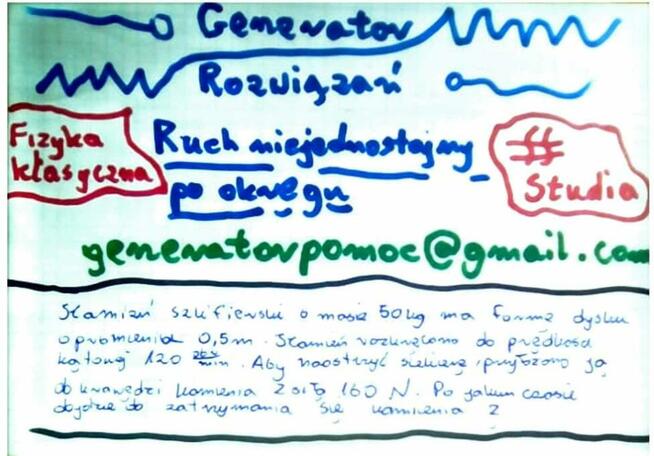 Generator
Rozwiązań
Fizyka
klasyczna
Ruch niejednostajny
po okręgu
# Studia
generatorpomoc@gmail.com
Kamień szlifierski o masie 50kg ma formę dysku
o promieniu 0,5m. Kamień rozkręcono do prędkości
kątowej 120 obr/min. Aby naostrzyć siekierę, przyłożono ją
do krawędzi kamienia z siłą 160 N. Po jakim czasie
dojdzie do zatrzymania się kamienia ?